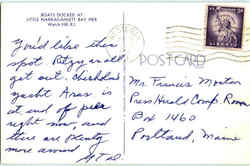 BOATS DOCKED AT
LITTLE NARRAGANSETT BAY PIER
Watch Hill R.I.
POSTCARD
You'd like this
spot. Ritzy as all
get out.
yacht Aras is
at end of pier
right now and
there are plenty
more around
Mr Francis Morton
Press Herald Comp. Room
Box 1460
Portland, Maine